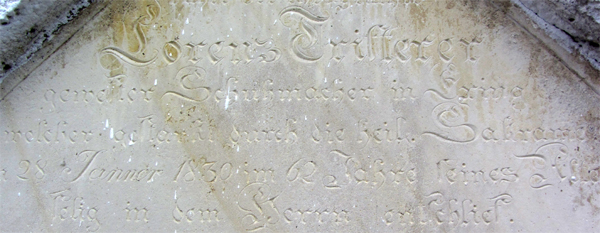 Lorenz Tristerer
gewester Schuhmacher in Ering
welcher gestärkt durch die heil. Sakrame
28 Jannar 1830 im 62 Jahre seines Alte
selig in dem Herrn entschlief.